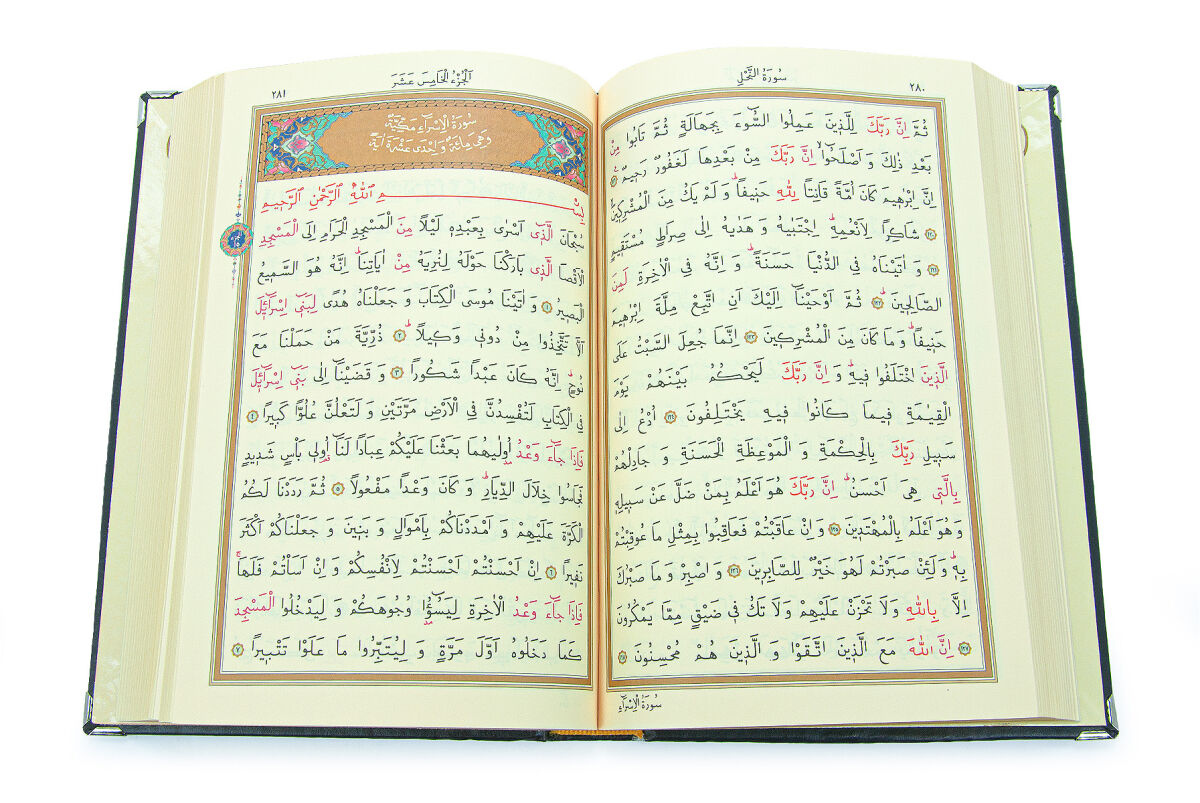 ٢٨٠ سُورَةُ النَّحْلِ
ثُمَّ اِنَّ رَبَّكَ لِلَّذ۪ينَ عَمِلُوا السُّٓوءَ بِجَهَالَةٍ ثُمَّ تَابُوا مِنْ
بَعْدِ ذٰلِكَ وَاَصْلَحُٓواۙ اِنَّ رَبَّكَ مِنْ بَعْدِهَا لَغَفُورٌ رَح۪يمٌ ﴿١١٩﴾
اِنَّ اِبْرٰه۪يمَ كَانَ اُمَّةً قَانِتًا لِلّٰهِ حَن۪يفًاۜ وَلَمْ يَكُ مِنَ الْمُشْرِك۪ينَۙ
﴿١٢٠﴾ شَاكِرًا لِاَنْعُمِهِۜ اِجْتَبٰيهُ وَهَدٰيهُ اِلٰى صِرَاطٍ مُسْتَق۪يمٍ
﴿١٢١﴾ وَاٰتَيْنَاهُ فِي الدُّنْيَا حَسَنَةًۜ وَاِنَّهُ فِي الْاٰخِرَةِ لَمِنَ
الصَّالِح۪ينَۜ ﴿١٢٢﴾ ثُمَّ اَوْحَيْنَٓا اِلَيْكَ اَنِ اتَّبِعْ مِلَّةَ اِبْرٰه۪يمَ
حَن۪يفًاۜ وَمَا كَانَ مِنَ الْمُشْرِك۪ينَ ﴿١٢٣﴾ اِنَّمَا جُعِلَ السَّبْتُ عَلَى
الَّذ۪ينَ اخْتَلَفُوا ف۪يهِۜ وَاِنَّ رَبَّكَ لَيَحْكُمُ بَيْنَهُمْ يَوْمَ
الْقِيٰمَةِ ف۪يمَا كَانُوا ف۪يهِ يَخْتَلِفُونَ ﴿١٢٤﴾ اُدْعُ اِلٰى
سَب۪يلِ رَبِّكَ بِالْحِكْمَةِ وَالْمَوْعِظَةِ الْحَسَنَةِ وَجَادِلْهُمْ
بِالَّت۪ي هِيَ اَحْسَنُۜ اِنَّ رَبَّكَ هُوَ اَعْلَمُ بِمَنْ ضَلَّ عَنْ سَب۪يلِه۪
وَهُوَ اَعْلَمُ بِالْمُهْتَد۪ينَ ﴿١٢٥﴾ وَاِنْ عَاقَبْتُمْ فَعَاقِبُوا بِمِثْلِ مَا عُوقِبْتُمْ
بِه۪ۜ وَلَئِنْ صَبَرْتُمْ لَهُوَ خَيْرٌ لِلصَّابِر۪ينَ ﴿١٢٦﴾ وَاصْبِرْ وَمَا صَبْرُكَ
اِلَّا بِاللّٰهِ وَلَا تَحْزَنْ عَلَيْهِمْ وَلَا تَكُ ف۪ي ضَيْقٍ مِمَّا يَمْكُرُونَ
﴿١٢٧﴾ اِنَّ اللّٰهَ مَعَ الَّذ۪ينَ اتَّقَوْا وَالَّذ۪ينَ هُمْ مُحْسِنُونَ ﴿١٢٨﴾
سُورَةُ الْاِسْرَاءِ
اَلْجُزْءُ الْخَامِسَ عَشَرَ ٢٨١
سُورَةُ الْاِسْرَاءِ مَكِّيَّةٌ
وَهِيَ مِائَةٌ وَاِحْدٰى عَشْرَةَ اٰيَةً
بِسْمِ اللّٰهِ الرَّحْمٰنِ الرَّح۪يمِ
سُبْحَانَ الَّذ۪ٓي اَسْرٰى بِعَبْدِه۪ لَيْلًا مِنَ الْمَسْجِدِ الْحَرَامِ اِلَى الْمَسْجِدِ
الْاَقْصَا الَّذ۪ي بَارَكْنَا حَوْلَهُ لِنُرِيَهُ مِنْ اٰيَاتِنَاۜ اِنَّهُ هُوَ السَّم۪يعُ
الْبَص۪يرُ ﴿١﴾ وَاٰتَيْنَا مُوسَى الْكِتَابَ وَجَعَلْنَاهُ هُدًى لِبَن۪ٓي اِسْرَٓائ۪لَ
اَلَّا تَتَّخِذُوا مِنْ دُون۪ي وَك۪يلًاۜ ﴿٢﴾ ذُرِّيَّةَ مَنْ حَمَلْنَا مَعَ
نُوحٍۜ اِنَّهُ كَانَ عَبْدًا شَكُورًا ﴿٣﴾ وَقَضَيْنَٓا اِلٰى بَن۪ٓي اِسْرَٓائ۪لَ
فِي الْكِتَابِ لَتُفْسِدُنَّ فِي الْاَرْضِ مَرَّتَيْنِ وَلَتَعْلُنَّ عُلُوًّا كَب۪يرًا ﴿٤﴾
فَاِذَا جَٓاءَ وَعْدُ اُو۫لٰيهُمَا بَعَثْنَا عَلَيْكُمْ عِبَادًا لَنَٓا اُو۬ل۪ي بَأْسٍ شَد۪يدٍ
فَجَاسُوا خِلَالَ الدِّيَارِۜ وَكَانَ وَعْدًا مَفْعُولًا ﴿٥﴾ ثُمَّ رَدَدْنَا لَكُمُ
الْكَرَّةَ عَلَيْهِمْ وَاَمْدَدْنَاكُمْ بِاَمْوَالٍ وَبَن۪ينَ وَجَعَلْنَاكُمْ اَكْثَرَ
نَف۪يرًا ﴿٦﴾ اِنْ اَحْسَنْتُمْ اَحْسَنْتُمْ لِاَنْفُسِكُمْ وَاِنْ اَسَأْتُمْ فَلَهَاۜ
فَاِذَا جَٓاءَ وَعْدُ الْاٰخِرَةِ لِيَسُٓؤُ۫ا وُجُوهَكُمْ وَلِيَدْخُلُوا الْمَسْجِدَ
كَمَا دَخَلُوهُ اَوَّلَ مَرَّةٍ وَلِيُتَبِّرُوا مَا عَلَوْا تَتْب۪يرًا ﴿٧﴾